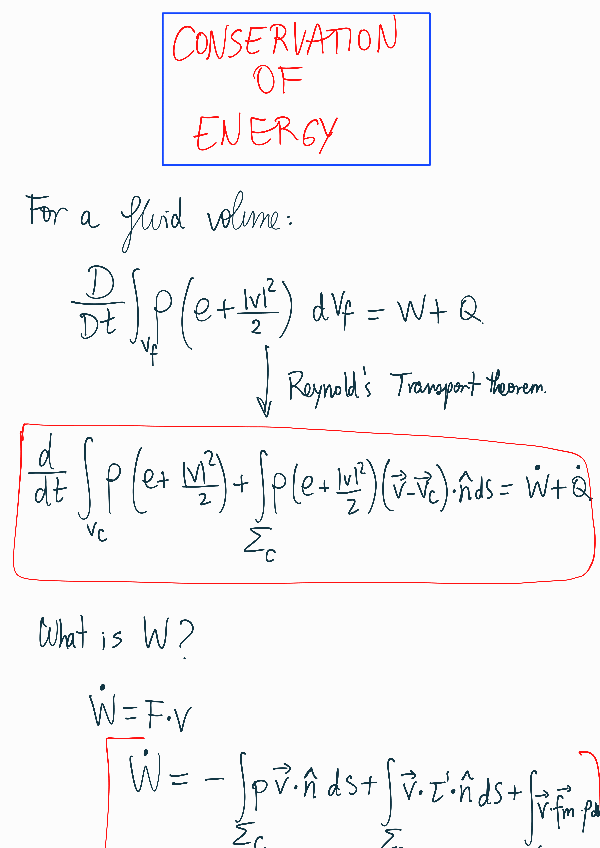 CONSERVATION
OF
ENERGY
For a fluid volume:
D/Dt ∫_{V_f} ρ (e + |v|²/2) dV_f = W + Q
Reynold's Transport theorem.
d/dt ∫_{V_c} ρ (e + |v|²/2) + ∫_{Σ_c} ρ (e + |v|²/2) (v⃗ - v⃗_c) · n̂ ds = Ẇ + Q̇
What is W?
Ẇ = F·v
Ẇ = - ∫_{Σ_c} p v⃗ · n̂ ds + ∫ v⃗ · τ' · n̂ ds + ∫ v⃗ · f⃗_m ρ